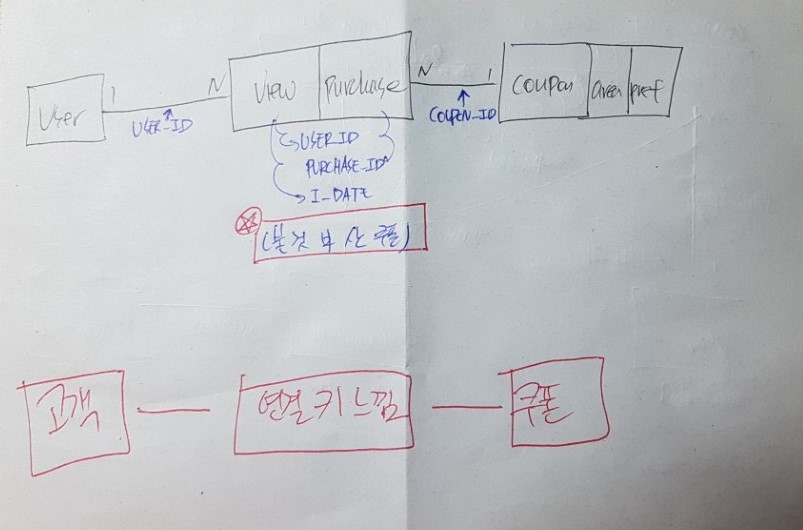 User 1 N View Purchase N 1 Coupon area pref
USER_ID
COUPON_ID
USER_ID
PURCHASE_ID
I_DATE
(본 것 부 산 쿠폰)
고객 연결 키 느낌 쿠폰